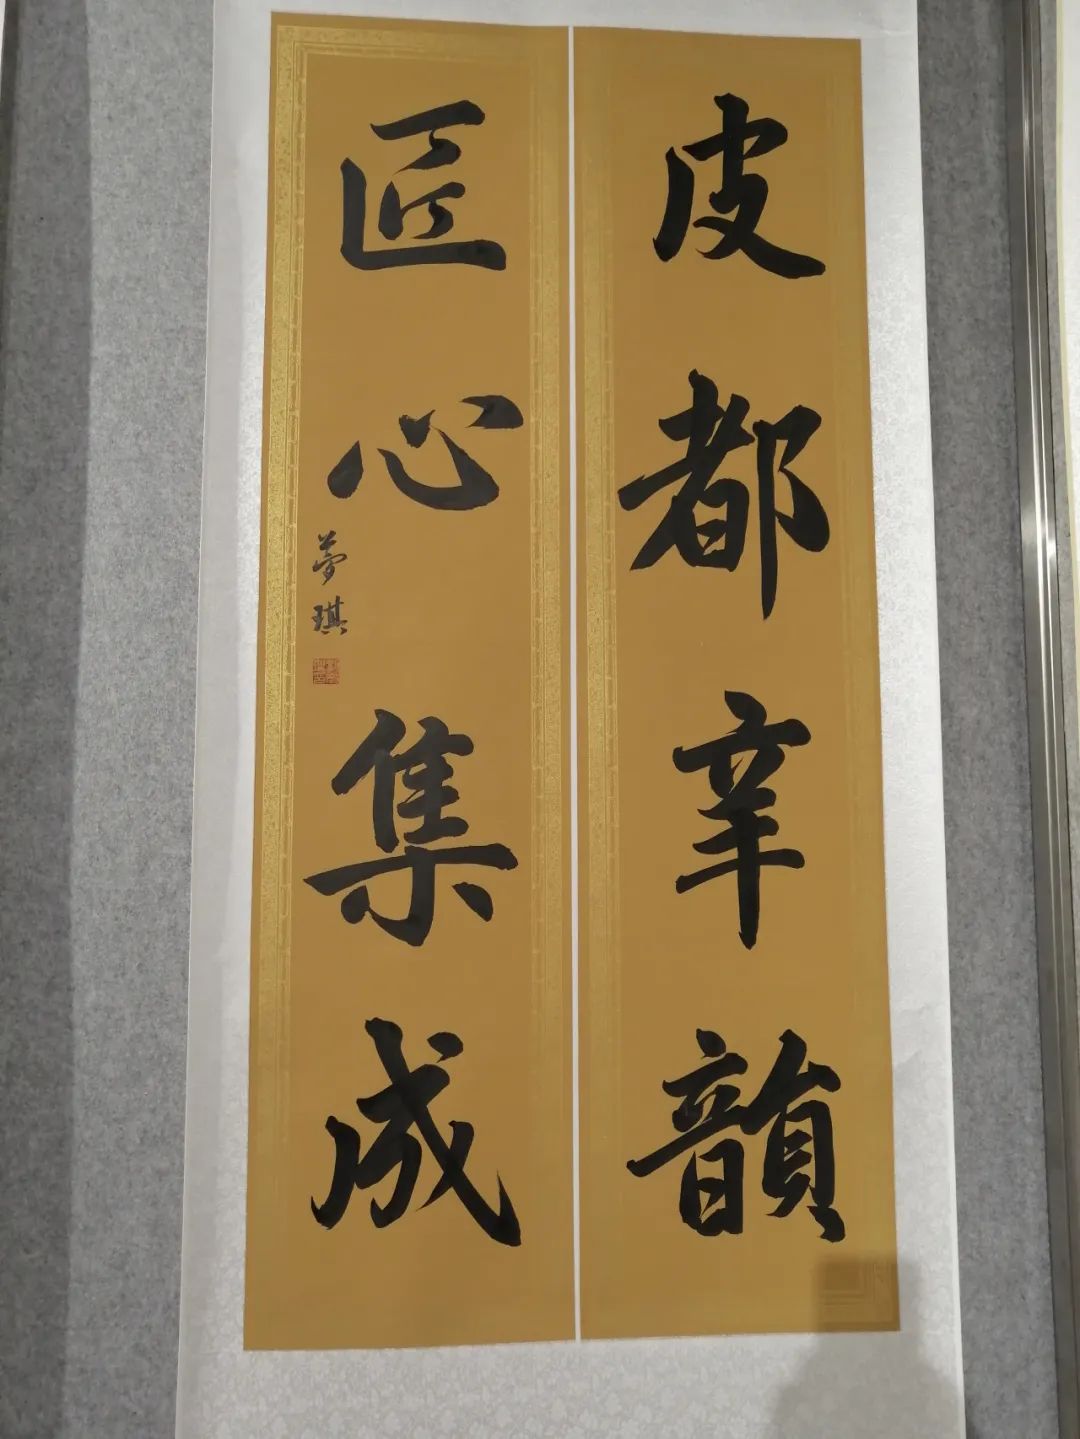 皮都辛韻
匠心集成
夢琪